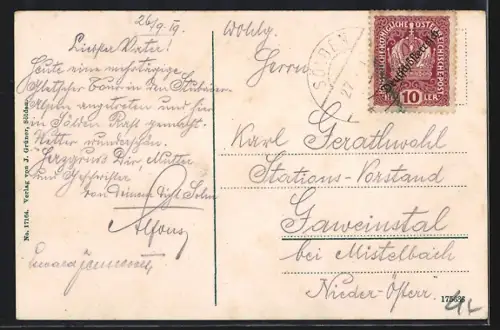 26/9. 19.
Liebster Vater!
Heute eine mehrtägige
Gletscher Tour in den Stubaier
Alpen angetreten und hier
in Sölden Rast gemacht.
Wetter wunderschön.
Herzgruss Dir, Mutter
und Geschwister
von Deinem Sohn
Alfons
No. 17164. Verlag von J. Grüner, Sölden.
Wohlg.
Herrn
SÖLDEN
27
KAISERLICHE KÖNIGLICHE ÖSTERREICHISCHE POST
Deutschösterreich
10 HELLER
Karl Gerathwohl
Stations-Vorstand
Gaweinstal
bei Mistelbach
Nieder-Österr.